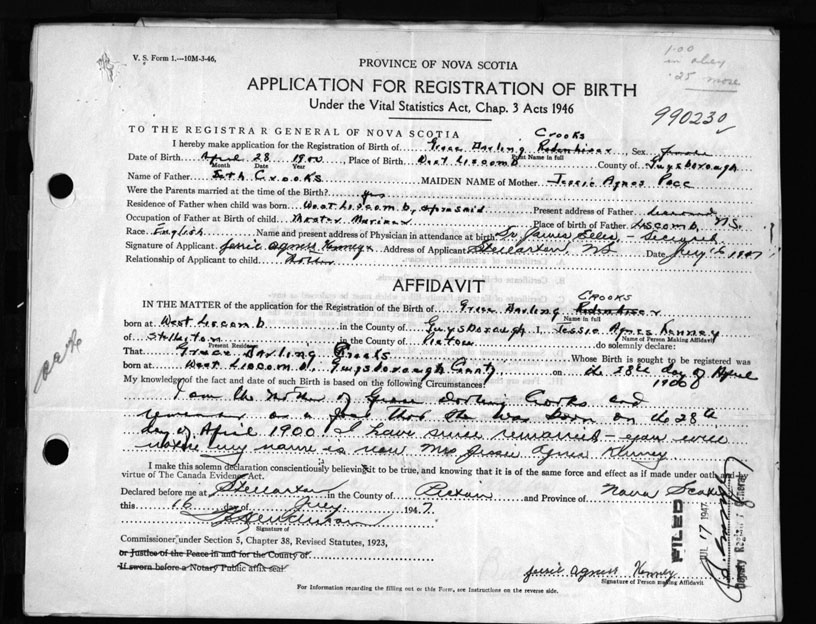 V. S. Form 1.---10M-3-46.
1.00
in obey
.25 more
PROVINCE OF NOVA SCOTIA
APPLICATION FOR REGISTRATION OF BIRTH
Under the Vital Statistics Act, Chap. 3 Acts 1946
990230
TO THE REGISTRAR GENERAL OF NOVA SCOTIA
Crooks
I hereby make application for the Registration of Birth of Grace Darling Sex Female
Print Name in full
Date of Birth April 28 1900 Place of Birth West Liscomb County of Guysborough
Month Date Year
Name of Father Seth Crooks MAIDEN NAME of Mother Jessie Agnes Pace
Were the Parents married at the time of the Birth? yes
Residence of Father when child was born West Liscomb, aforesaid Present address of Father deceased
Occupation of Father at Birth of child Master Mariner Place of birth of Father Liscomb, N.S.
Race English Name and present address of Physician in attendance at birth Dr James
Signature of Applicant Jessie Agnes Kenney Address of Applicant Stellarton, NS Date July 16 1947
Relationship of Applicant to child Mother
AFFIDAVIT
CROOKS
IN THE MATTER of the application for the Registration of Birth of Grace Darling
Name in full
born at West Liscomb in the County of Guysborough I, Jessie Agnes Kenney
Name of Person Making Affidavit
of Stellarton in the County of Pictou do solemnly declare:
Present Residence
That Grace Darling Crooks Whose Birth is sought to be registered was
born at West Liscomb, Guysborough County on the 28th day of April
1900
My knowledge of the fact and date of such Birth is based on the following Circumstances:
I am the Mother of Grace Darling Crooks and
remember as a fact that she was born on the 28th
day of April 1900 I have since remarried - you will
notice my name is now Mrs Jessie Agnes Kenney
I make this solemn declaration conscientiously believing it to be true, and knowing that it is of the same force and effect as if made under oath and by
virtue of The Canada Evidence Act.
Declared before me at Stellarton in the County of Pictou and Province of Nova Scotia
this 16 day of July 1947
Signature of
Commissioner under Section 5, Chapter 38, Revised Statutes, 1923,
or Justice of the Peace in and for the County of
If sworn before a Notary Public affix seal
Jessie Agnes Kenney
Signature of Person making Affidavit
For Information regarding the filling out of this Form, see Instructions on the reverse side.
FILED
JUL 17 1947
Deputy Registrar General